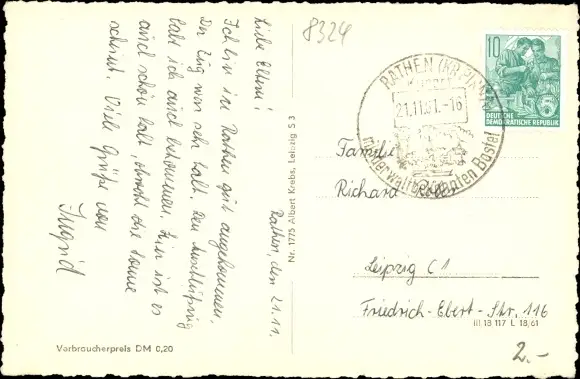 Rathen, den 21.11.
Liebe Eltern!
Ich bin in Rathen gut angekommen.
Der Zug war sehr kalt. Den Anschlußzug
habe ich auch bekommen. Hier ist es
auch schön kalt, obwohl die Sonne
scheint. Viele Grüße von
Ingrid
Verbraucherpreis DM 0,20
Nr. 1775 Albert Krebs, Leipzig S 3
8324
10
DEUTSCHE
DEMOKRATISCHE REPUBLIK
RATHEN (KR PIRNA)
KURORT
21.11.61.-16
mit der weltbekannten Bastei
Familie
Richard
Leipzig C1
Friedrich-Ebert-Str. 116
III 18 117 L 18,61
2.-